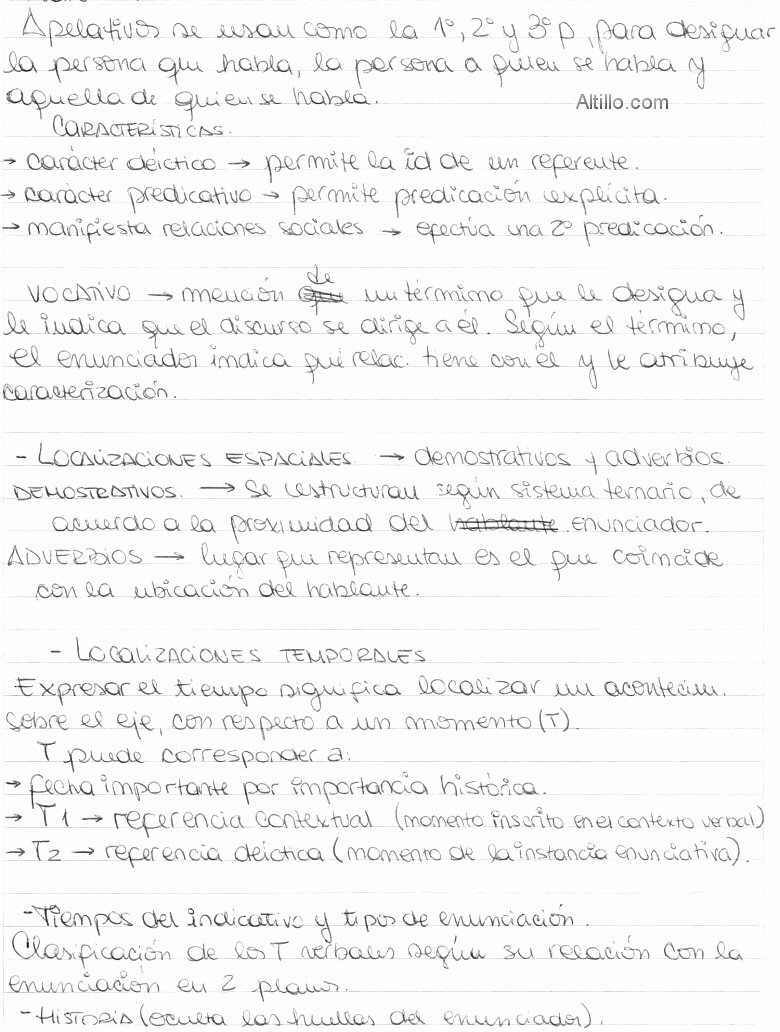 Apelativos se usan como la 1°, 2° y 3° p, para designar
la persona que habla, la persona a quien se habla y
aquella de quien se habla.
Altillo.com
CARACTERÍSTICAS.
→ carácter deíctico → permite la id de un referente.
→ carácter predicativo → permite predicación explícita.
→ manifiesta relaciones sociales → efectúa una 2° predicación.
VOCATIVO → mención de un término que le designa y
le indica que el discurso se dirige a él. Según el término,
el enunciador indica qué relac. tiene con él y le atribuye
caracterización.
- LOCALIZACIONES ESPACIALES → demostrativos y adverbios.
DEMOSTRATIVOS. → Se estructuran según sistema ternario, de
acuerdo a la proximidad del hablante enunciador.
ADVERBIOS → lugar que representan es el que coincide
con la ubicación del hablante.
- LOCALIZACIONES TEMPORALES
Expresar el tiempo significa localizar un acontecim.
sobre el eje, con respecto a un momento (T).
T puede corresponder a:
→ fecha importante por importancia histórica.
→ T1 → referencia contextual (momento inscrito en el contexto verbal)
→ T2 → referencia deíctica (momento de la instancia enunciativa).
- Tiempos del indicativo y tipos de enunciación.
Clasificación de los T verbales según su relación con la
enunciación en 2 planos.
- HISTORIA (oculta las huellas del enunciador).